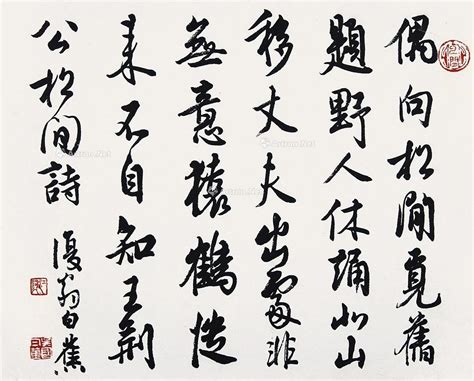 偶向松間覓舊
題野人休誦北山
移丈夫出處非
無意猿鶴從
來不自知王荊
公松間詩 復翁白蕉
Artron.Net